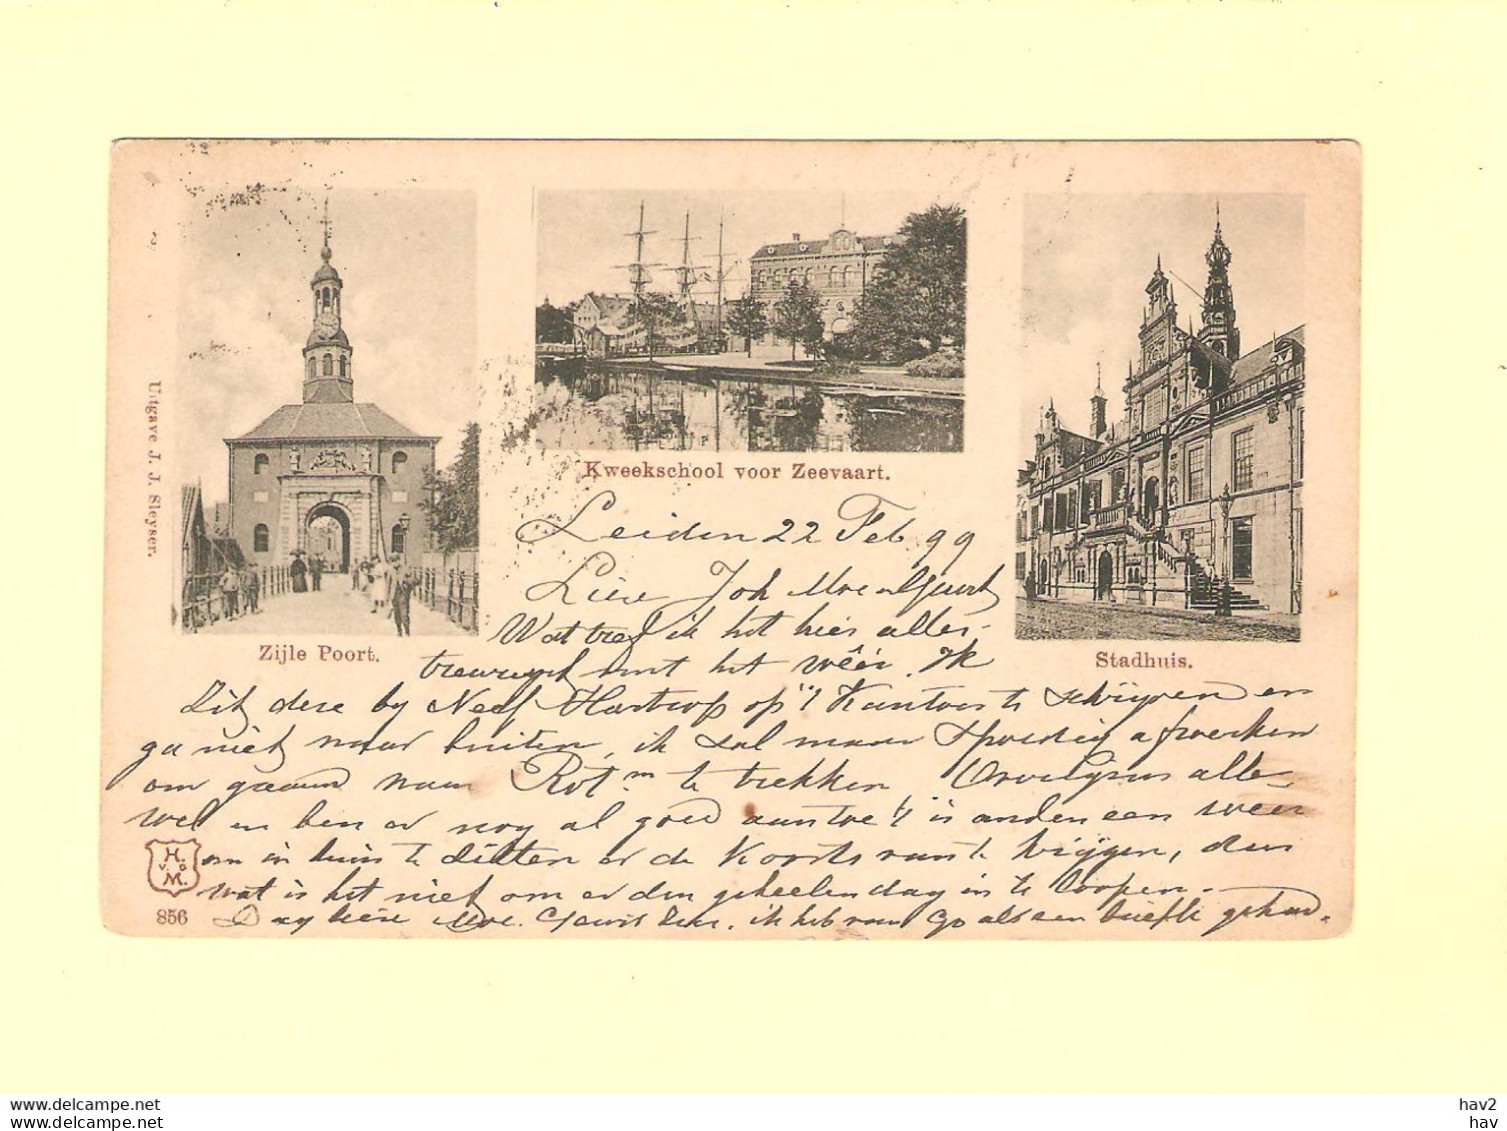 Uitgave J. J. Sleyser.
Kweekschool voor Zeevaart.
Zijle Poort.
Stadhuis.
Leiden 22 Feb. 99
Lieve Joh
Wat tref ik het hier aller-
treurigst met het wêer. Ik
Zit dere by Neef Hartrop op 't Kantoor te schrijven en
ga niet naar buiten, ik zal maar spoedig afwerken
om gaauw naar Rotm te trekken. Overigens alle
wel en ben er nog al goed aan toe 't is anders een weer
om in huis te zitten er de Koorts van te krijgen, dan
wat is het niet om er den geheelen dag in te loopen.-
Dag lieve Moe. ik heb van Go al een briefje gehad.
H.
v. o
M.
856
www.delcampe.net
www.delcampe.net
hav2
hav